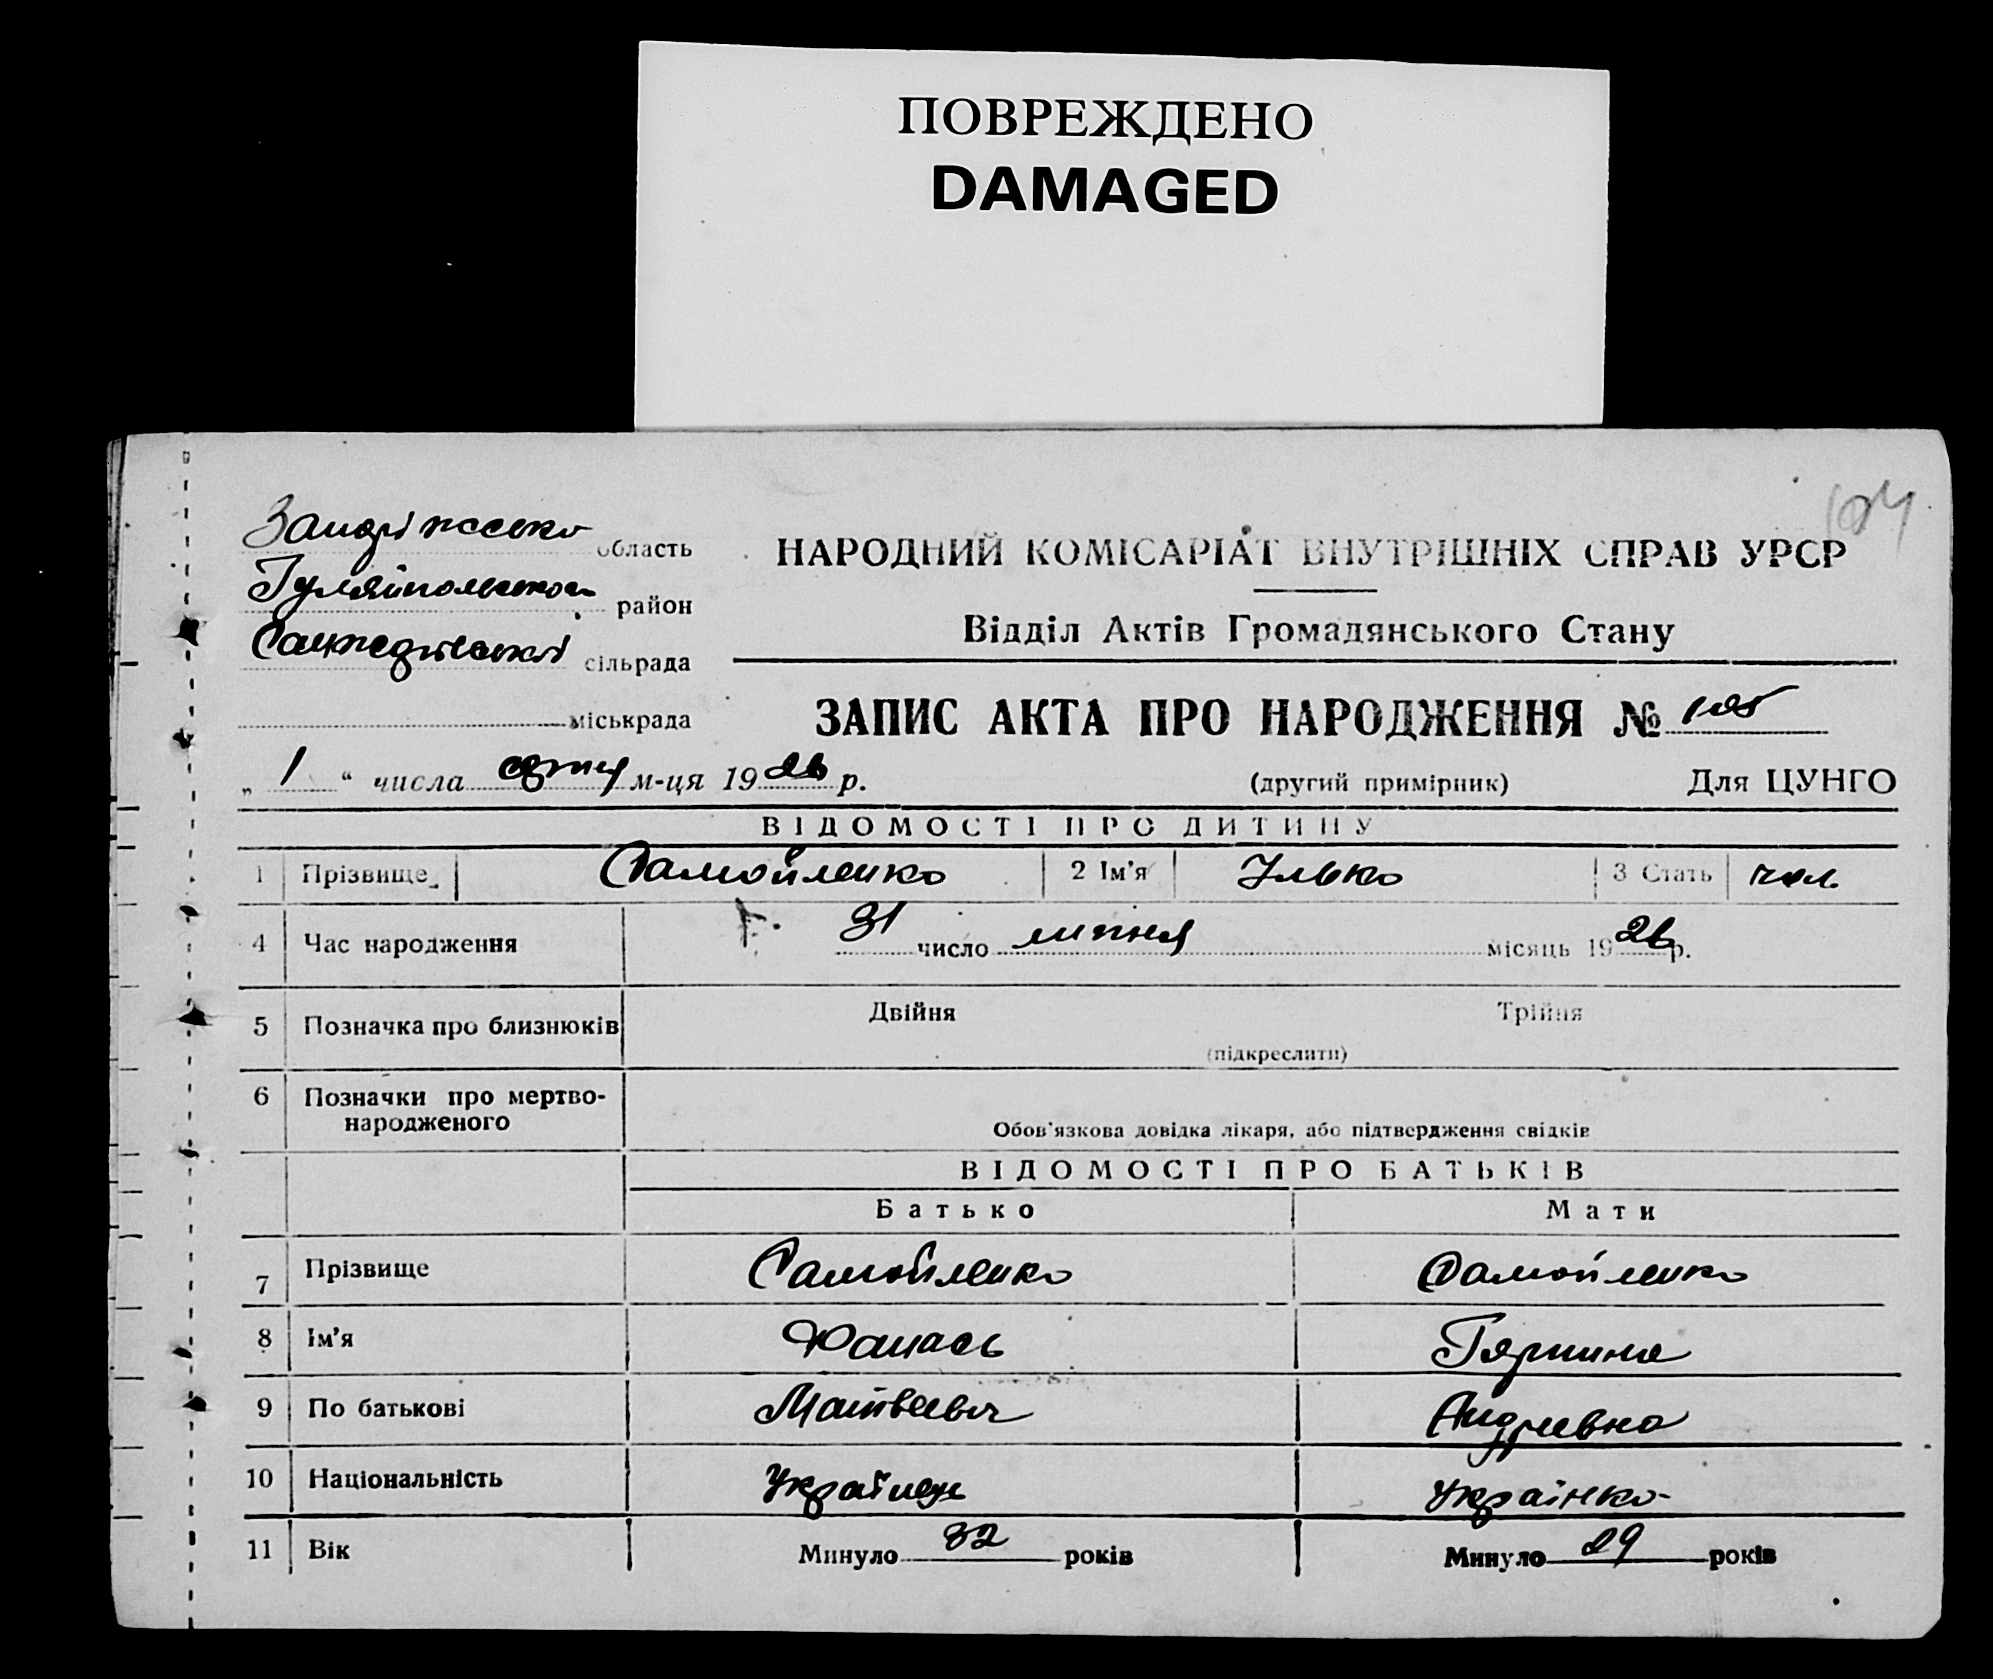 ПОВРЕЖДЕНО
DAMAGED
104
область
Гуляйпольського район
сільрада
міськрада
НАРОДНИЙ КОМІСАРІАТ ВНУТРІШНІХ СПРАВ УРСР
Відділ Актів Громадянського Стану
ЗАПИС АКТА ПРО НАРОДЖЕННЯ № 105
„ 1 “ числа серпня м-ця 1926 р. (другий примірник) Для ЦУНГО
ВІДОМОСТІ ПРО ДИТИНУ
1 Прізвище Самойленко 2 Ім'я Улько 3 Стать чол.
4 Час народження 31 число липня місяць 1926 р.
5 Позначка про близнюків Двійня Трійня
(підкреслити)
6 Позначки про мертво-
народженого
Обов'язкова довідка лікаря, або підтвердження свідків
ВІДОМОСТІ ПРО БАТЬКІВ
Батько Мати
7 Прізвище Самойленко Самойленко
8 Ім'я Панась
9 По батькові Матвеевич Андреевна
10 Національність Українец Українка
11 Вік Минуло 32 років Минуло 29 років